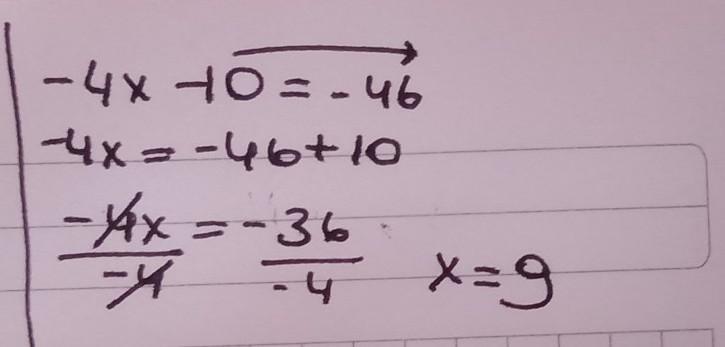 -4x -10 = -46
-4x = -46+10
-4x/-4 = -36/-4 x=9